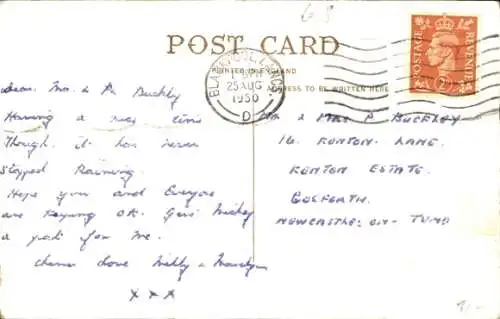 68
POST CARD
PRINTED IN ENGLAND
ADDRESS TO BE WRITTEN HERE
BLACKPOOL, LANCS
25 AUG
1950
D
POSTAGE
REVENUE
2D
Dear Mr & Buckley
Having a nice time
Though it has never
Stopped Raining
Hope you and Everyone
are Keeping OK. Give Mickey
a pat for me.
love Milly &
x x x
Mr & Mrs P BUCKLEY
16. KENTON LANE.
KENTON ESTATE.
GOSFORTH.
NEWCASTLE-ON-TYNE